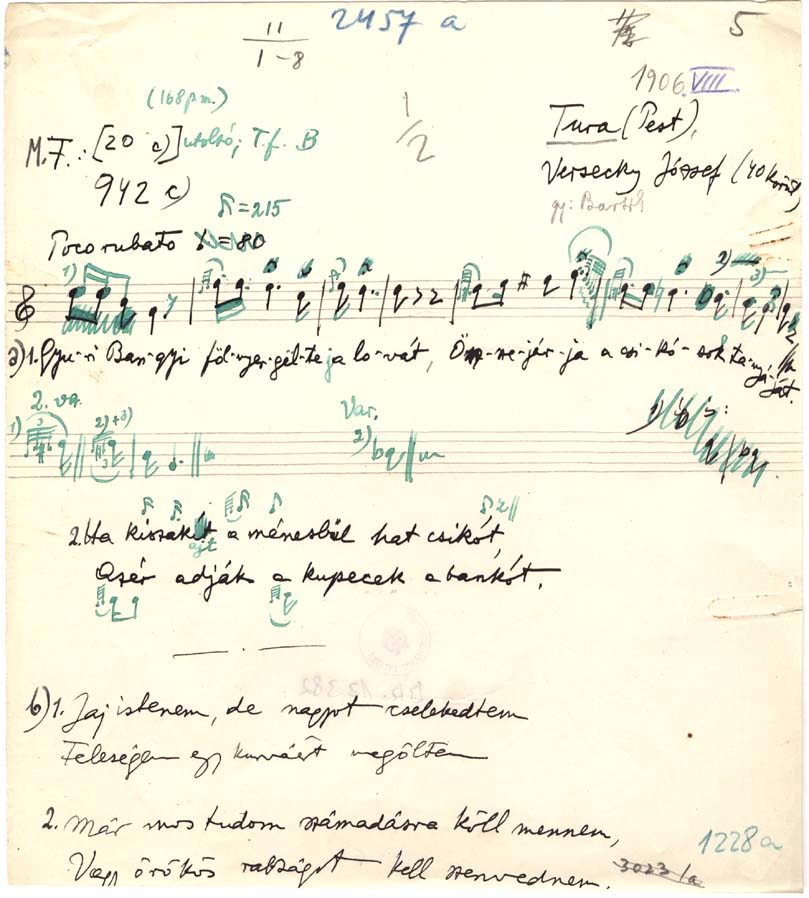 11
1-8
2457 a
5
1906. VIII.
(168 pm.)
1/2
M.F.: [20 c)] utolsó; T.f. B
942 c)
Tura (Pest),
Versecky József (40 körül)
gy: Bartók
=215
Poco rubato =80
1) 2) 3)
a) 1. Gyu-ri Ban-gyi föl-nyer-gel-te ja lo-vát, Ösz-sze-jár-ja a csi-kó-sok ta-nyá-ját.
2. va.
1) 2)+3)
Var.
2)
2. Ha kiszakít a ménesbül hat csikót,
ajt
Azér adják a kupecek a bankót.
b) 1. Jaj istenem, de nagyot cselekedtem
Feleségem egy kurváért megöltem
2. Már mos tudom számadásra köll mennem,
Vagy örökös rabságot kell szenvednem.
1228 a
3023/a